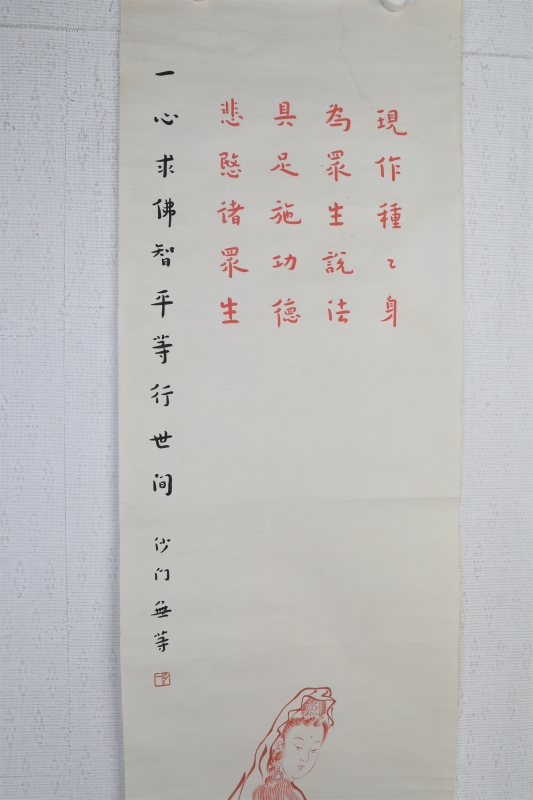 現作種〻身
為眾生說法
具足施功德
悲愍諸眾生
一心求佛智平等行世间
沙门無等